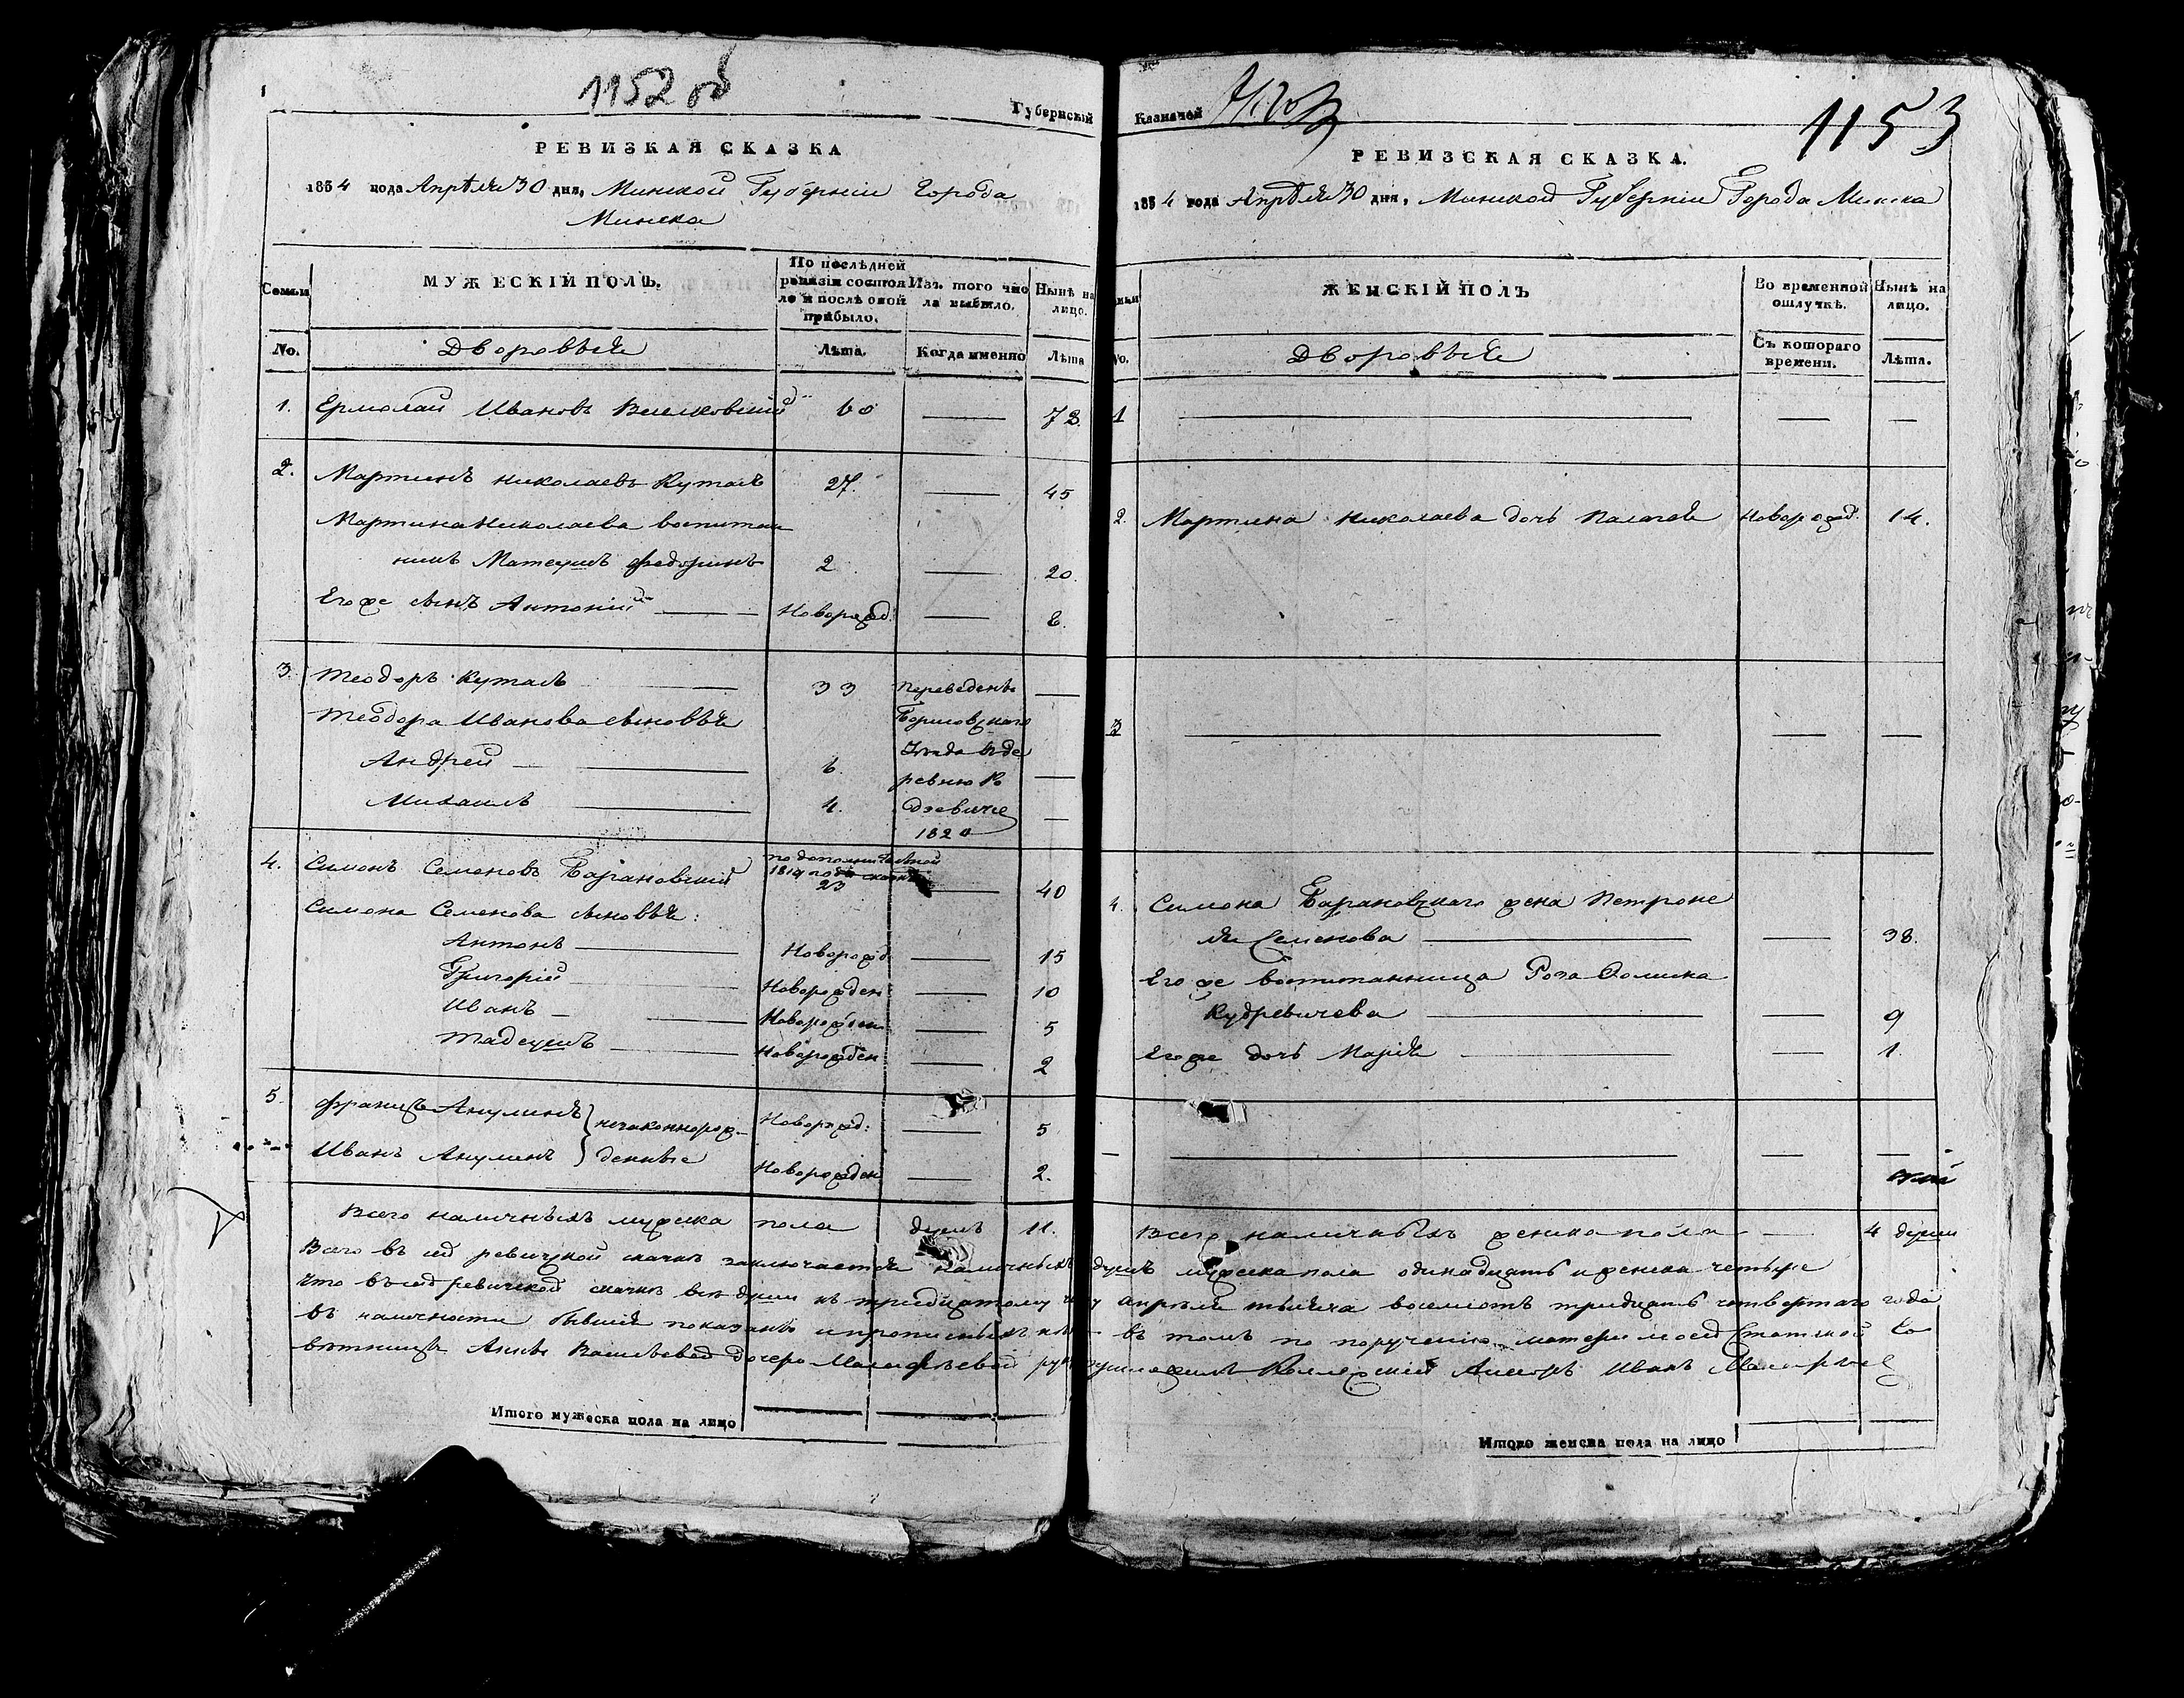 1152 об
Губернскій
РЕВИЗКАЯ СКАЗКА
1834 года Апрѣля 30 дня, Минской Губерніи Города
Минска
Семьи
МУЖЕСКІЙ ПОЛЪ.
По послѣдней ревизіи состояло и послѣ оной прибыло.
Изъ того числа выбыло.
Нынѣ на лицо.
No.
Дворовыя
Лѣта.
Когда именно
Лѣта
1. Ермолай Ивановъ 60 — 78.
2. Мартинъ Николаевъ Куталъ 27. — 45
Мартина Николаева воспитан
никъ Матеушъ 2 — 20.
Его же сынъ Антоній — Новорожд: — 8.
3. Теодоръ Куталъ — 33 Переведенъ —
Теодора Иванова сыновья Борисовскаго
Андрей — 6. уѣзда въ де —
ревню Ро
Михаилъ — 4. дзевиче —
1820
4. Симонъ Семеновъ Барановскій по дополнительной
23 — 40
Симона Семенова сыновья:
Антонъ — Новорожд — 15
Григорій — Новорожден — 10
Иванъ — Новорожден — 5
Тадеушъ — Новорожден — 2
5. Францъ Акулинъ } незаконнорож- Новорожд: — 5
Иванъ Акулинъ } денные Новорожден — 2.
Всего наличныхъ мужеска пола душъ 11.
Всего въ сей ревизской сказкѣ заключается наличныхъ
Что въ сей ревизской сказкѣ всѣ души къ тридцатому чи
въ наличности бывшія показаны и прописныхъ нѣ
вѣтницы Анны Васильевой дочери рук
Итого мужеска пола на лицо
Казначей
1153
РЕВИЗСКАЯ СКАЗКА.
1834 года Апрѣля 30 дня, Минской Губерніи Города Минска
ЖЕНСКІЙ ПОЛЪ
Во временной отлучкѣ.
Нынѣ на лицо.
No.
Дворовыя
Съ котораго времени.
Лѣта.
1 — — —
2. Мартина Николаева дочь Палагея Новорожд. 14.
3 — — —
4. Симона Барановскаго жена Петроне
ля Семенова — — 38.
Его же воспитанница Роза Домика
Кудревичева — — 9
Его же дочь Марія — — 1.
— — — —
Всего наличныхъ женска пола — 4 души
душъ мужеска пола одинадцать и женска четыре
апрѣля тысяча восемсотъ тридцать четвертаго года
въ томъ по порученію матери моей Статской Со
приложилъ Коллежскій Ассесоръ Иванъ
Итого женска пола на лицо